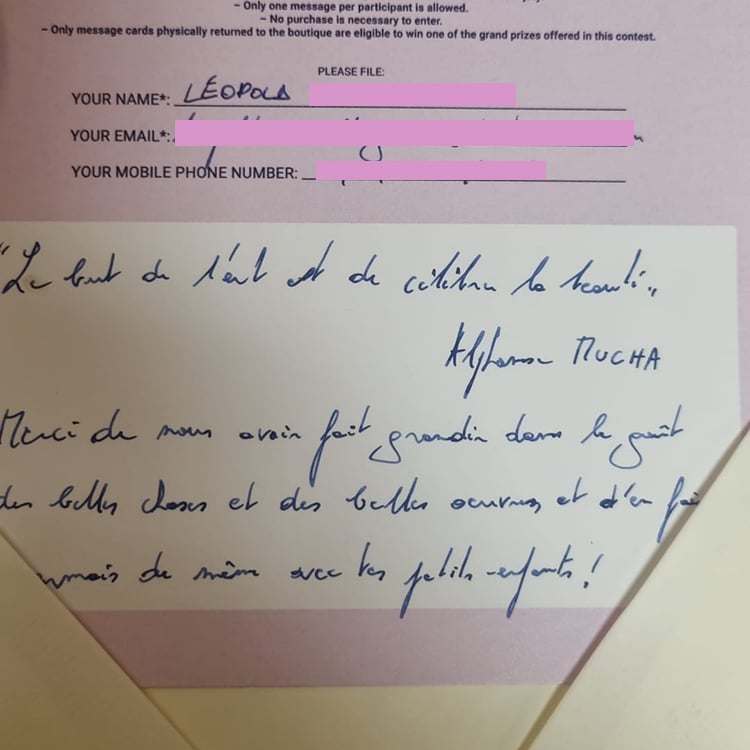 – Only one message per participant is allowed.
– No purchase is necessary to enter.
– Only message cards physically returned to the boutique are eligible to win one of the grand prizes offered in this contest.
PLEASE FILE:
YOUR NAME*: LÉOPOLD
YOUR EMAIL*:
YOUR MOBILE PHONE NUMBER:
"Le but de l'art est de célébrer la beauté"
Alphonse MUCHA
Merci de nous avoir fait grandir dans le goût
des belles choses et des belles oeuvres, et d'en fai
de même avec tes petits-enfants !